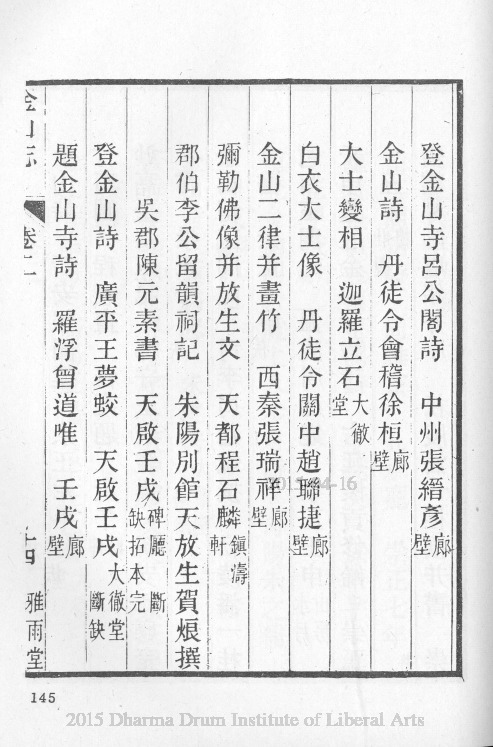 登金山寺呂公閣詩　中州張縉彥廊壁
金山詩　丹徒令會稽徐桓廊壁
大士變相　迦羅立石大徹堂
白衣大士像　丹徒令關中趙聯捷廊壁
金山二律并畫竹　西秦張瑞祥廊壁
彌勒佛像并放生文　天都程石麟鎮濤軒
郡伯李公留韻祠記　朱陽別館天放生賀烺撰
吳郡陳元素書　天啟壬戌碑廳斷缺拓本完
登金山詩　廣平王夢蛟　天啟壬戌大徹堂斷缺
題金山寺詩　羅浮曾道唯　壬戌廊壁
金山志　卷二　十四　雅雨堂
2015-04-16
145
2015 Dharma Drum Institute of Liberal Arts